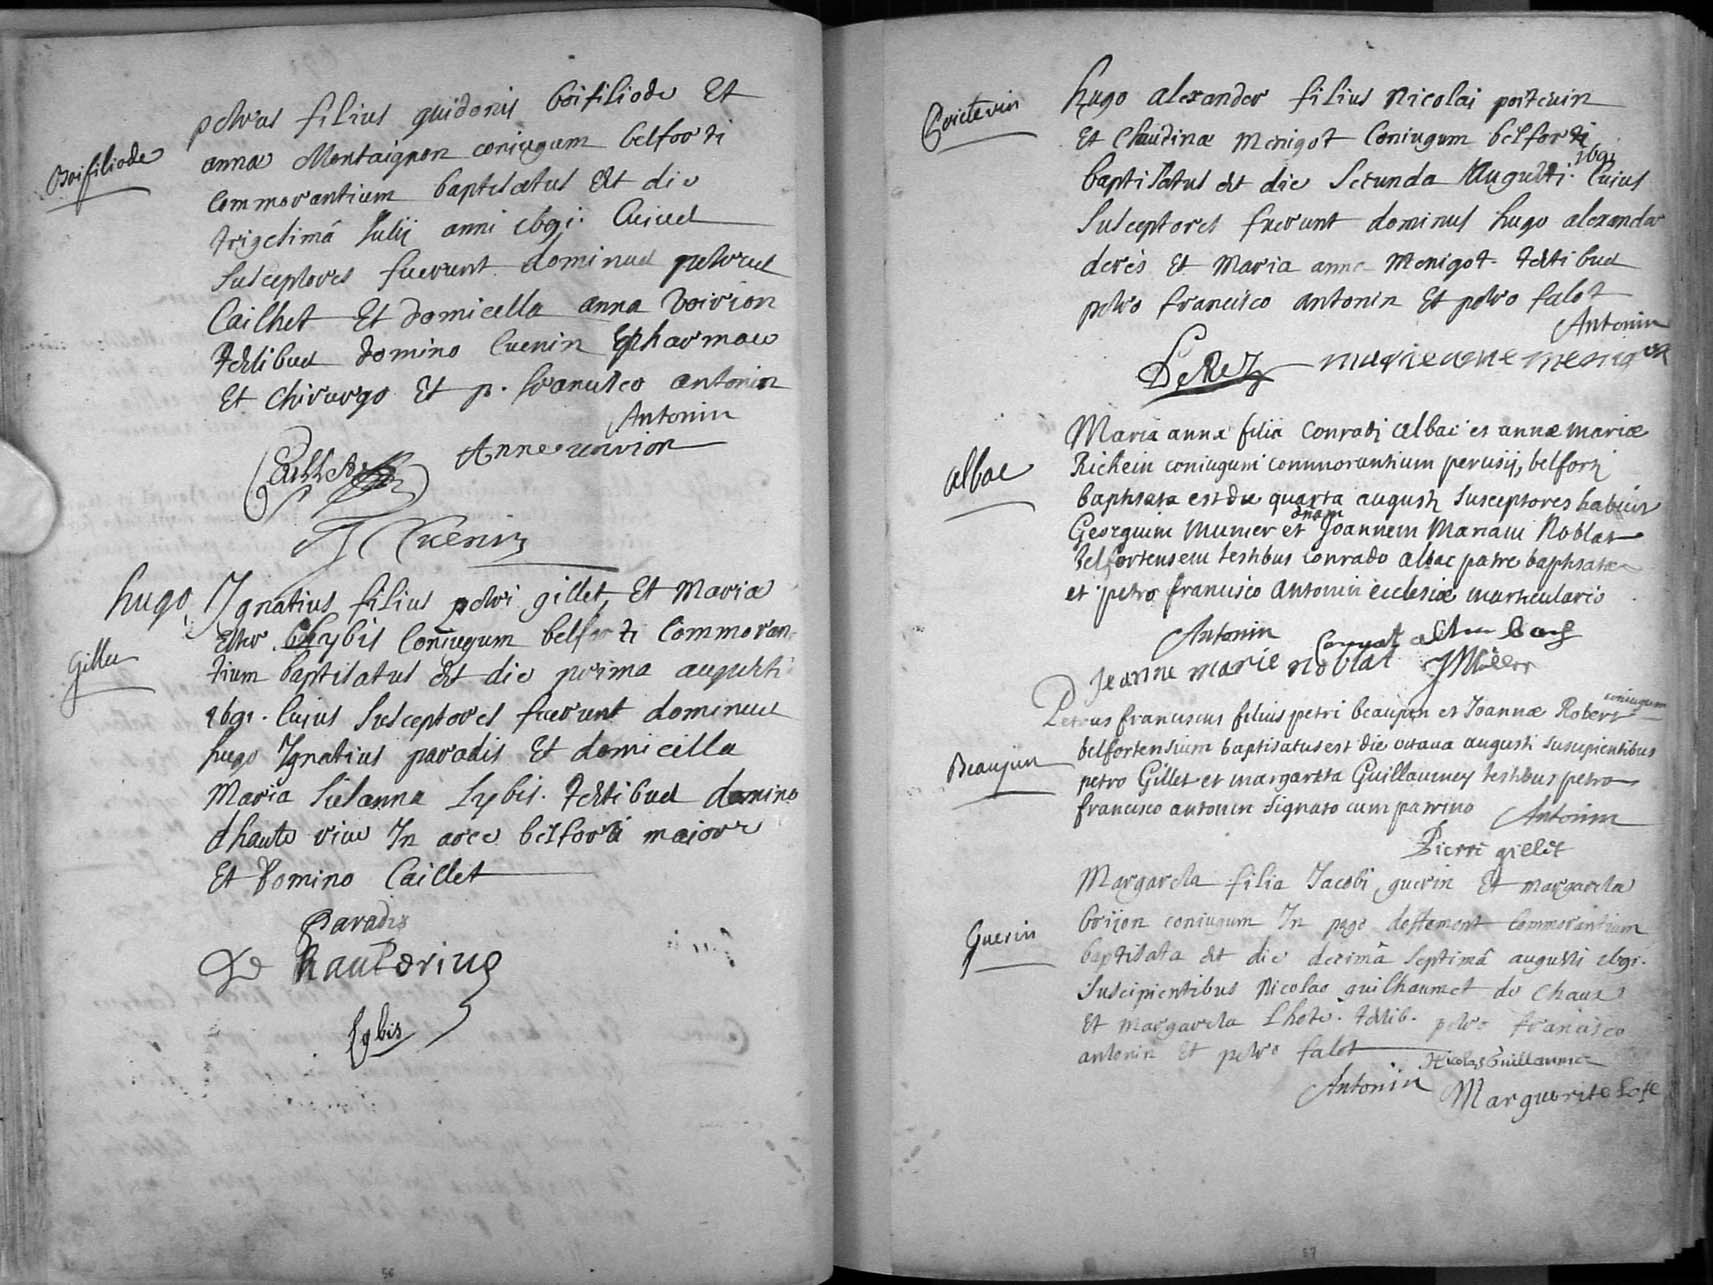 Boifiliode
petrus filius guidonis boifiliode Et
annæ Montaignon coniugum belforti
Commorantium baptisatus Est die
trigesimâ Julij anni 1691. Cuius
Susceptores fuerunt dominus petrus
Cailhet Et domicella anna voirion
testibus domino Cuenin
Et Chirurgo Et p. francisco antonin
Antonin
Cailhet Anne voirion
Cuenin
Gillet
hugo Ignatius filius petri gillet Et Maria
Lybis Coniugum belforti Commoran
tium baptisatus Est die prima augusti
1691. Cuius Susceptores fuerunt dominus
hugo Ignatius paradis Et domicella
Maria Susanna Lybis. testibus domino
d'haute rive In arce belforti maiore
Et domino Caillet
Paradis
De hauterive
Lybis
56
Poictevin
hugo alexander filius Nicolai poitevin
Et Claudinæ Menigot Coniugum belforti
1691
baptisatus est die Secunda Augusti. Cuius
Susceptores fuerunt dominus hugo alexander
derès Et Maria anna Menigot. testibus
petro francisco antonin Et petro falot
Antonin
DeReZ marie anne menigot
albac
Maria anna filia Conradi albac et annæ mariæ
Richein coniugum commorantium perusij, belforti
baptisata est die quarta augusti Susceptores habuit
Georgium Munier et Joannem Mariam Noblat
belfortensem testibus Conrado albac patre baptisatæ
et petro francisco Antonin ecclesiæ matriculario
Antonin
Jeanne marie noblat JMüller
Beaujun
coniugum
Petrus franciscus filius petri beaujun et Joannæ Robert
belfortensium baptisatus est die octava augusti suscipientibus
petro Gillet et margareta Guillaumey testibus petro
francisco antonin Signato cum patrino Antonin
Pierre gillet
Guerin
Margareta filia Jacobi guerin Et margareta
briion coniugum In pago dessement Commorantium
baptisata est die decimâ Septimâ augusti 1691.
Suscipientibus Nicolao guilhaumet de Chaux
Et margareta Lhote. testib. petro francisco
antonin Et petro falot
Nicolas Guillaume
Antonin Marguerite Lote
57